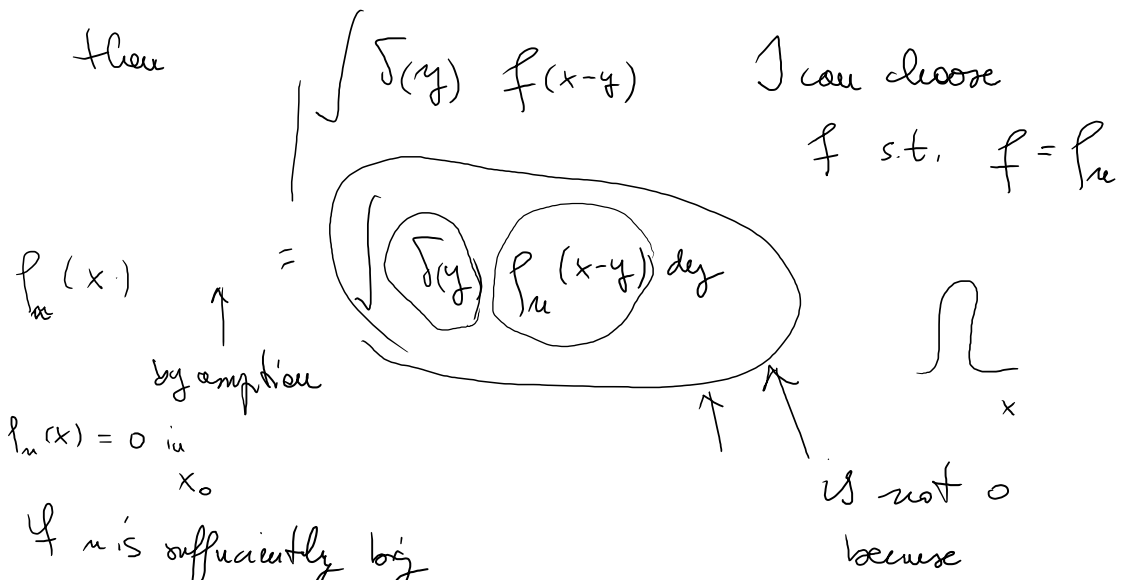 then ∫ δ(y) f(x-y) I can choose
f s.t. f = ρₙ
ρₙ(x) = ∫ δ(y) ρₙ(x-y) dy
by amption
x
ρₙ(x) = 0 in
x₀
is not 0
If n is sufficiently big
because